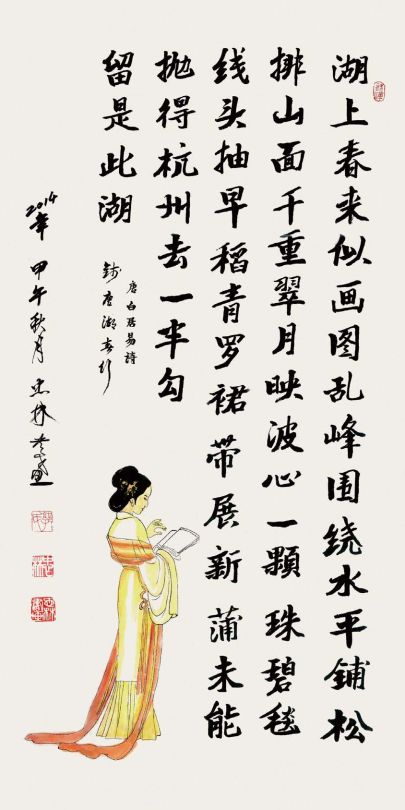 湖上春来似画图乱峰围绕水平铺松
排山面千重翠月映波心一颗珠碧毯
线头抽早稻青罗裙带展新蒲未能
抛得杭州去一半勾
留是此湖
唐白居易诗
钱唐湖春行
2014年 甲午秋月 忠林